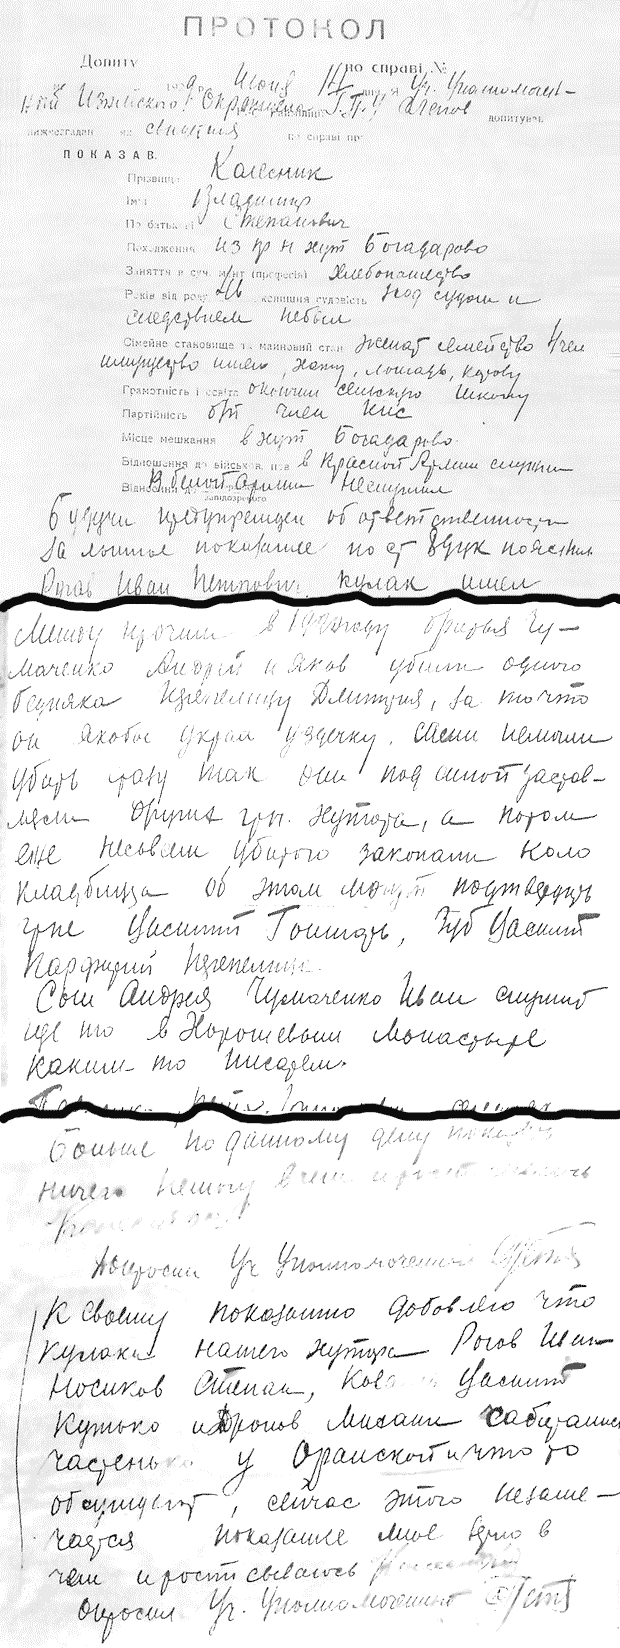 ПРОТОКОЛ
Допиту по справі №
192 9 р. Июня 14 дня я Уч. Уполномоч-
н-ый Изюмского Окротдела Г.П.У.
допитував
нижезгадан як свидетеля по справі про
ПОКАЗАВ:
Прізвище Колесник
Ім'я Владимир
По батькові Степанович
Походження из кр-н хут Богодарово
Заняття в суч. мент (професія) хлебопашество
Років від роду колишня судовість под судом и
следствием небыл
Сімейне становище та майновий стан женат семейство 4 чел
имущество имею, хату, лошадь, корову
Грамотність і освіта окончил сельскую школу
Партійність б/п член КНС
Місце мешкання в хут Богодарово
Відношення до військов. пов в Красной Армии служил
В белой Армии неслужил
Відношення до
запідозреного
Будучи предупрежден об ответственности
за ложное показание по ст УК пояснил
Рогов Иван Петрович кулак имел
Между прочим в году братья Чу-
маченко Андрей и Яков убили одного
бедняка Перепелицу Дмитрия, за то что
он якобы украл уздечку. Сами немогли
убить сразу так они под силой застав-
ляли других гр. хутора, а потом
еще несовсем убитого закопали коло
кладбища об этом могут подтвердить
гр-не Василий Гонтарь, Зуб Василий
Парфирий Перепелица.
Сын Андрея Чумаченко Иван служит
где то в Хорошевом монастыре
каким-то писарем.
Больше по данному делу показать
ничего немогу в чем и росписываюсь
Допросил Уч Уполномоченный
К своему показанию добовляю что
кулаки нашего хутора Рогов Иван
Носиков Степан, Василий
Кутько и Дронов Михаил сабирались
частенько у и что то
обсуждают, сейчас этого незаме-
чается показание мое верно в
чем и росписываюсь
Опросил Уч. Уполномоченный